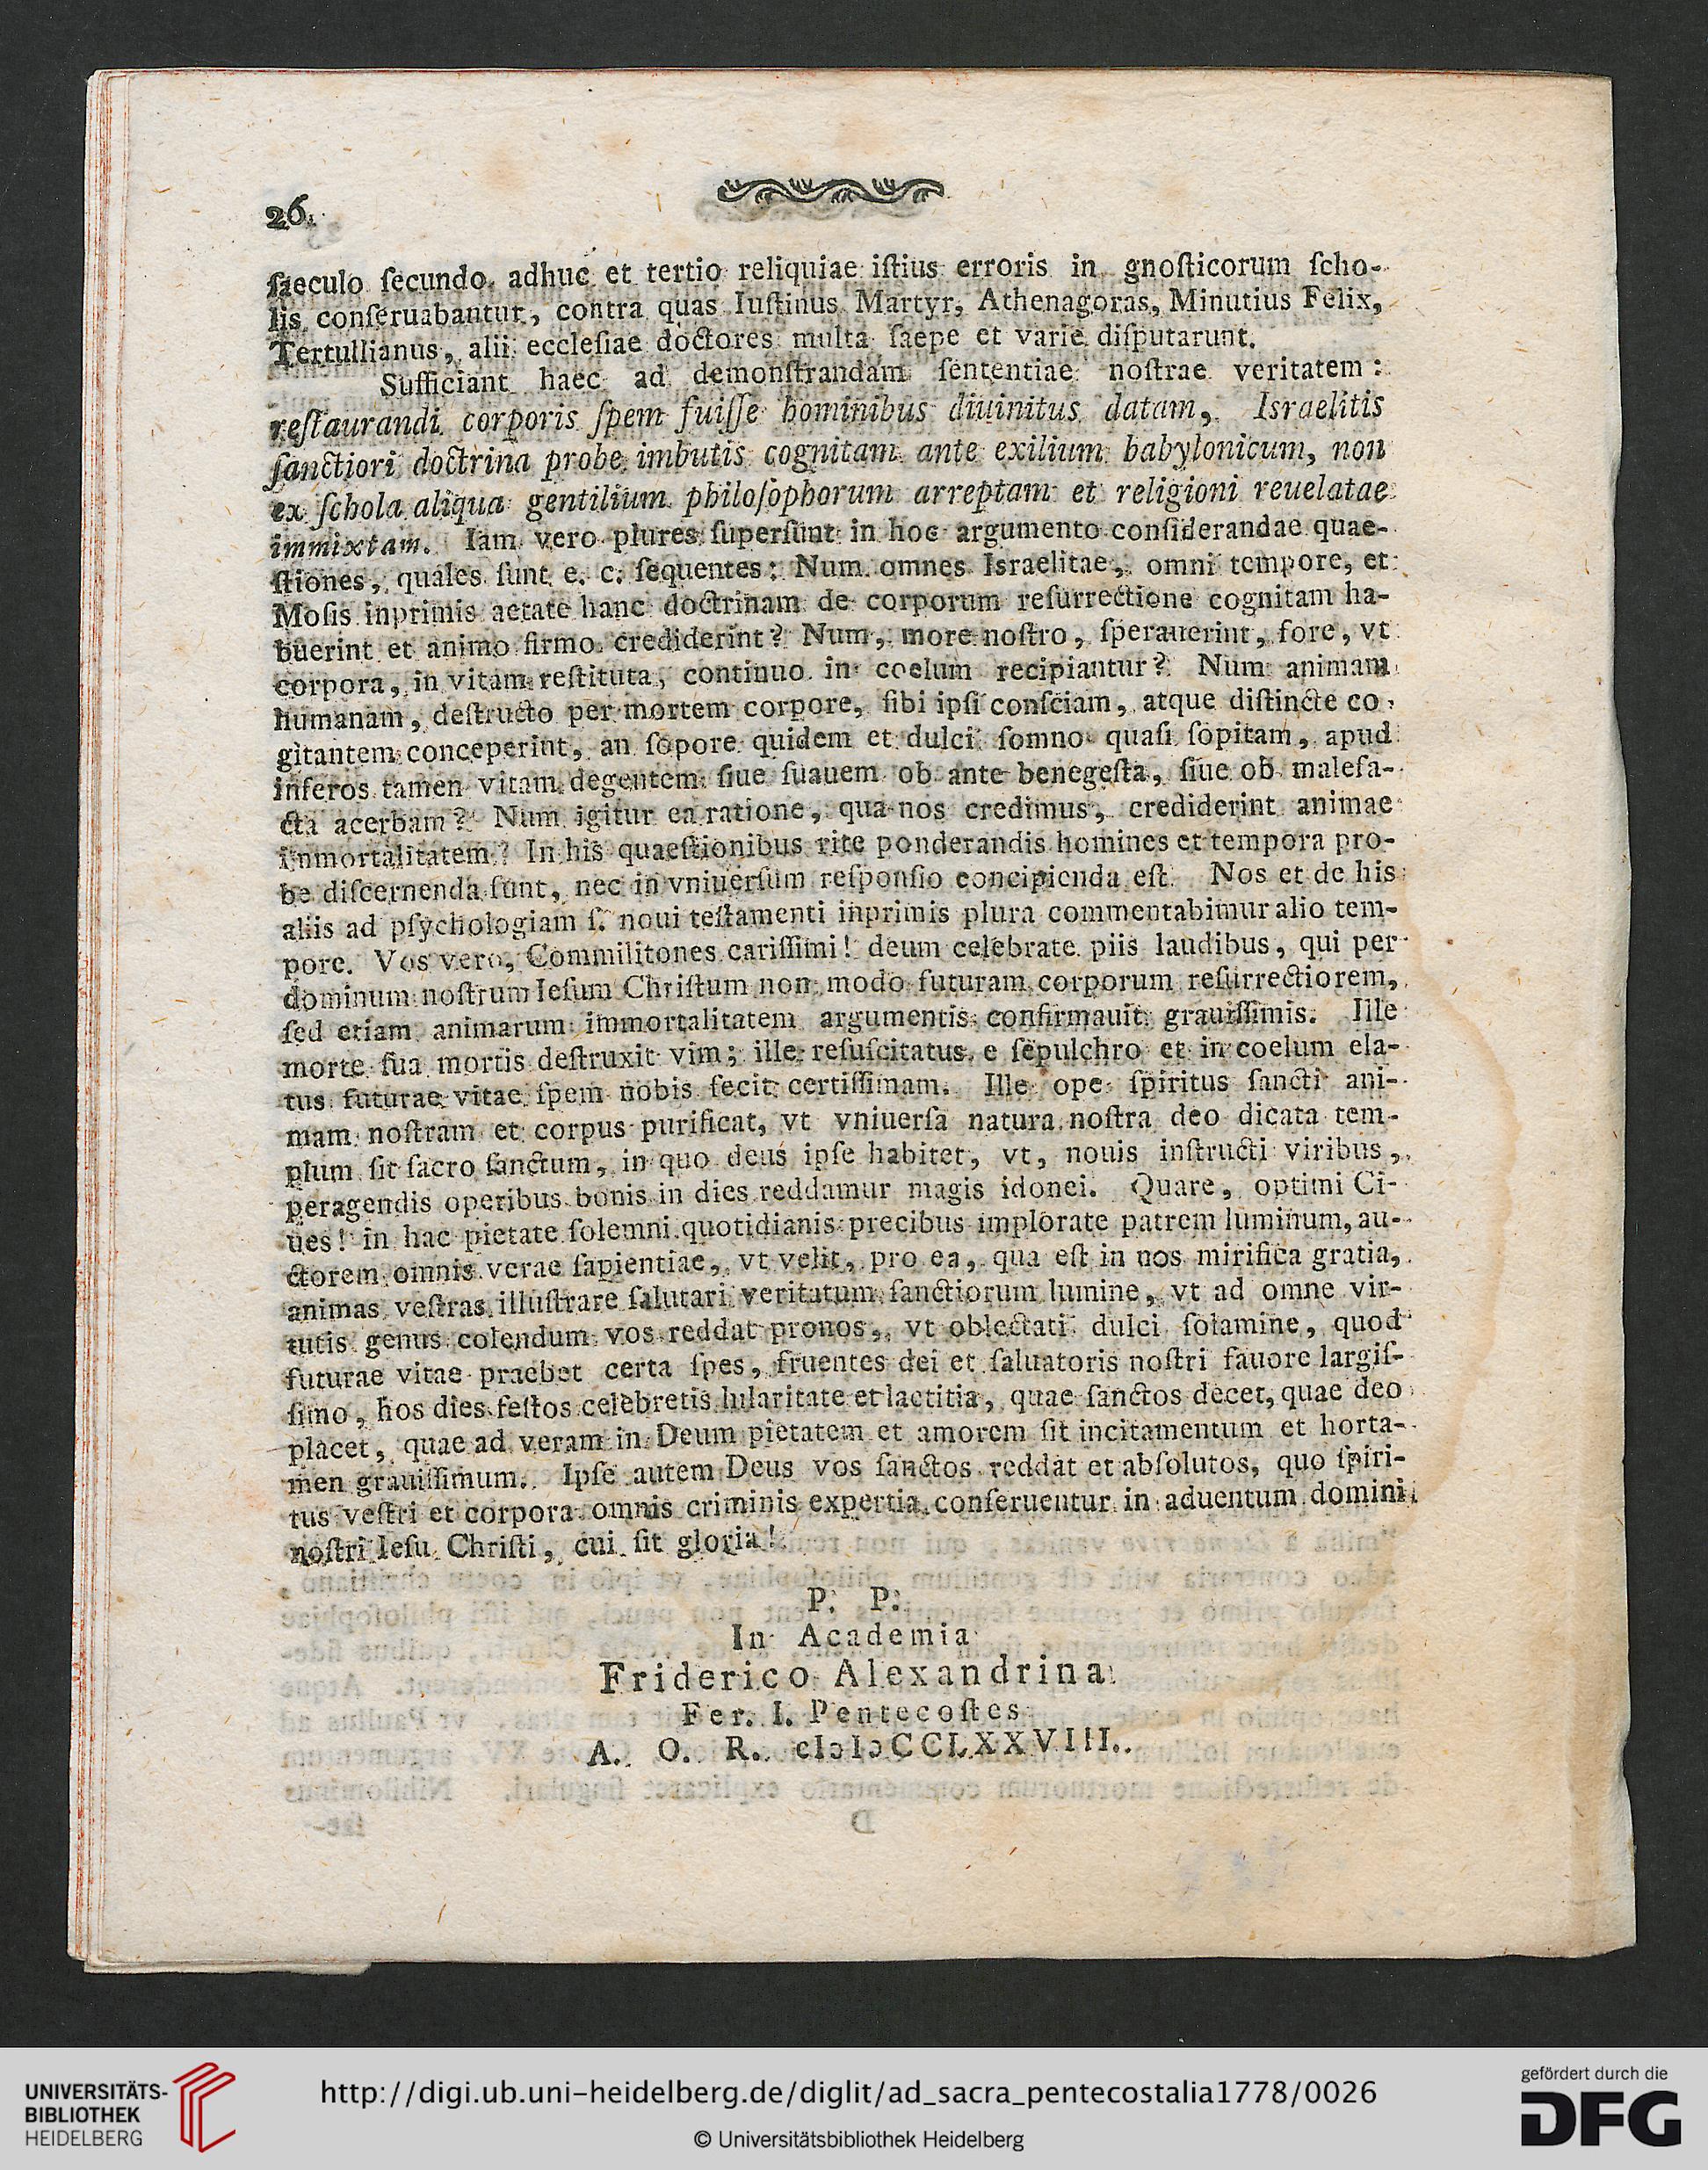 26.
ſaeculo ſecundo adhuc et tertio reliquiae iſtius erroris in gnoſticorum ſcho-
lis conſeruabantur, contra quas Iuſtinus Martyr, Athenagoras, Minutius Felix,
Tertullianus, alii eccleſiae doctores multa ſaepe et varie diſputarunt.
Sufficiant haec ad demonſtrandam ſententiae noſtrae veritatem:
reſtaurandi corporis ſpem fuiſſe hominibus diuinitus datam, Israelitis
ſanctiori doctrina probe imbutis cognitam ante exilium babylonicum, non
ex ſchola aliqua gentilium philoſophorum arreptam et religioni reuelatae
immixtam. Iam vero plures ſuperſunt in hoc argumento conſiderandae quae-
ſtiones, quales ſunt e. c. ſequentes: Num omnes Israelitae, omni tempore, et
Moſis inprimis aetate hanc doctrinam de corporum reſurrectione cognitam ha-
buerint et animo firmo crediderint? Num, more noſtro, ſperauerint, fore, vt
corpora, in vitam reſtituta, continuo in coelum recipiantur? Num animam
humanam, deſtructo per mortem corpore, ſibi ipſi conſciam, atque diſtincte co-
gitantem conceperint, an ſopore quidem et dulci ſomno quaſi ſopitam, apud
inferos tamen vitam degentem ſiue ſuauem ob ante benegeſta, ſiue ob malefa-
cta acerbam? Num igitur ea ratione, qua nos credimus, crediderint animae
immortalitatem? In his quaeſtionibus rite ponderandis homines et tempora pro-
be diſcernenda ſunt, nec in vniuerſum reſponſio concipienda eſt. Nos et de his
aliis ad pſychologiam ſ. noui teſtamenti inprimis plura commentabimur alio tem-
pore. Vos vero, Commilitones cariſſimi! deum celebrate piis laudibus, qui per
dominum noſtrum Ieſum Chriſtum non modo futuram corporum reſurrectiorem,
ſed etiam animarum immortalitatem argumentis confirmauit grauiſſimis. Ille
morte ſua mortis deſtruxit vim; ille reſuſcitatus e ſepulchro et in coelum ela-
tus futurae vitae ſpem nobis fecit certiſſimam. Ille ope ſpiritus ſancti ani-
mam noſtram et corpus purificat, vt vniuerſa natura noſtra deo dicata tem-
plum ſit ſacro ſanctum, in quo deus ipſe habitet, vt, nouis inſtructi viribus,
peragendis operibus bonis in dies reddamur magis idonei. Quare, optimi Ci-
ues! in hac pietate ſolemni quotidianis precibus implorate patrem luminum, au-
ctorem omnis verae ſapientiae, vt velit, pro ea, qua eſt in nos mirifica gratia,
animas veſtras illuſtrare ſalutari veritatum ſanctiorum lumine, vt ad omne vir-
tutis genus colendum vos reddat pronos, vt oblectati dulci ſolamine, quod
futurae vitae praebet certa ſpes, fruentes dei et ſaluatoris noſtri fauore largiſ-
ſimo, hos dies feſtos celebretis hilaritate et laetitia, quae ſanctos decet, quae deo
placet, quae ad veram in Deum pietatem et amorem ſit incitamentum et horta-
men grauiſſimum. Ipſe autem Deus vos ſanctos reddat et abſolutos, quo ſpiri-
tus veſtri et corpora omnis criminis expertia conſeruentur in aduentum domini
noſtri Ieſu Chriſti, cui ſit gloria!
P. P.
In Academia
Friderico Alexandrina
Fer. I. Pentecoſtes
A. O. R. cIɔIɔCCLXXVIII.
UNIVERSITÄTS-
BIBLIOTHEK
HEIDELBERG
http://digi.ub.uni-heidelberg.de/diglit/ad_sacra_pentecostalia1778/0026
© Universitätsbibliothek Heidelberg
gefördert durch die
DFG